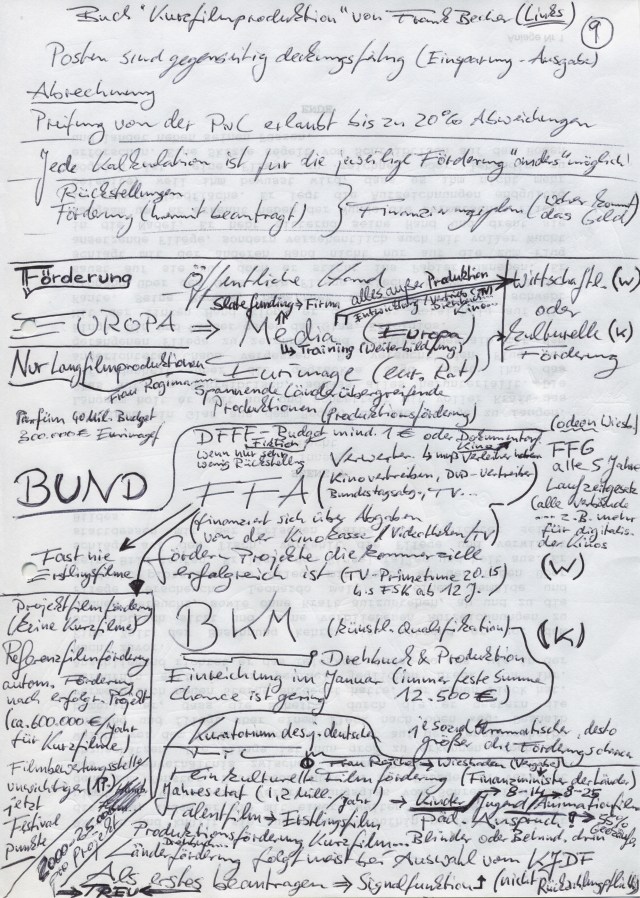 Buch "Kurzfilmproduktion" von Frank Becher (Links)
9
Posten sind gegenseitig deckungsfähig (Einsparung - Ausgabe)
Abrechnung
Prüfung von der PWC erlaubt bis zu 20% Abweichungen
Jede Kalkulation ist für die jeweilige Förderung "anders" möglich!
Rückstellungen
Förderung (hiermit beantragt) } Finanzierungsplan (woher kommt das Geld)
Förderung
Öffentliche Hand
alles außer Produktion
Wirtschaftl. (W)
Slate funding → Firma
Entwicklung
Kino...
oder
EUROPA ⇒ Media (Europa)
Kulturelle (K)
Training (Weiterbildung)
Förderung
Nur Langfilmproduktionen
Eurimages (eur. Rat)
Frau
Spannende Länderübergreifende
Produktionen (Produktionsförderung)
Parfüm 40 Mil. Budget
300.000€
DFFF - Budget mind. 1€ oder Dokumentary
Kino
(oder im Wirtsch.)
Fiktion
wenn nur sehr
wenig Rückstellung
Verwerber
BUND
FFA
(Kinovertreiber, DVD-Vertreiber
Bundestagsabg., TV...
FFG
alle 5 Jahre
Laufzeitgesetz
(alle Verbände
... z.B. mehr
für digitalis.
der Kinos
(finanziert sich über Abgaben
von der Kinokasse / Videotheken / TV)
Fast nie
Erstlingsfilme
fördern Projekte die kommerziell
erfolgreich ist (TV-Primetime 20.15)
bis FSK ab 12 J.
(W)
Projektfilmförderung
(keine Kurzfilme)
Referenzfilmförderung
autom. Förderung
nach erfolgr. Projekt
(ca. 600.000€/Jahr
für Kurzfilme)
Filmbewertungsstelle
unwichtiger
jetzt
Festival
punkte
2000-25.000
Pro Projekt
BKM
(künstl. Qualifikation)
(K)
Drehbuch & Produktion
Einreichung im Januar (immer feste Summe
Chance ist gering
12.500€)
Kuratorium des jg. deutschen
je sozialthematischer, desto
größer die Förderungschance
Wiesbaden (Vergabe)
Film kulturelle Filmförderung (Finanzminister der Länder)
Jahresetat (1,2 Mill. Jahr) → Kinder
8-14 → 8-25
Jugend/Animationsfilm
Talentfilm → Erstlingsfilm
Päd. Anspruch
Produktionsförderung Kurzfilm...
Blinder oder Behind. drin
Drehbuch...
Länderförderung folgt meist bei Auswahl vom KJDF
Als erstes beantragen ⇒ Signalfunktion (nicht Rückzahlungspflichtig)
TREU